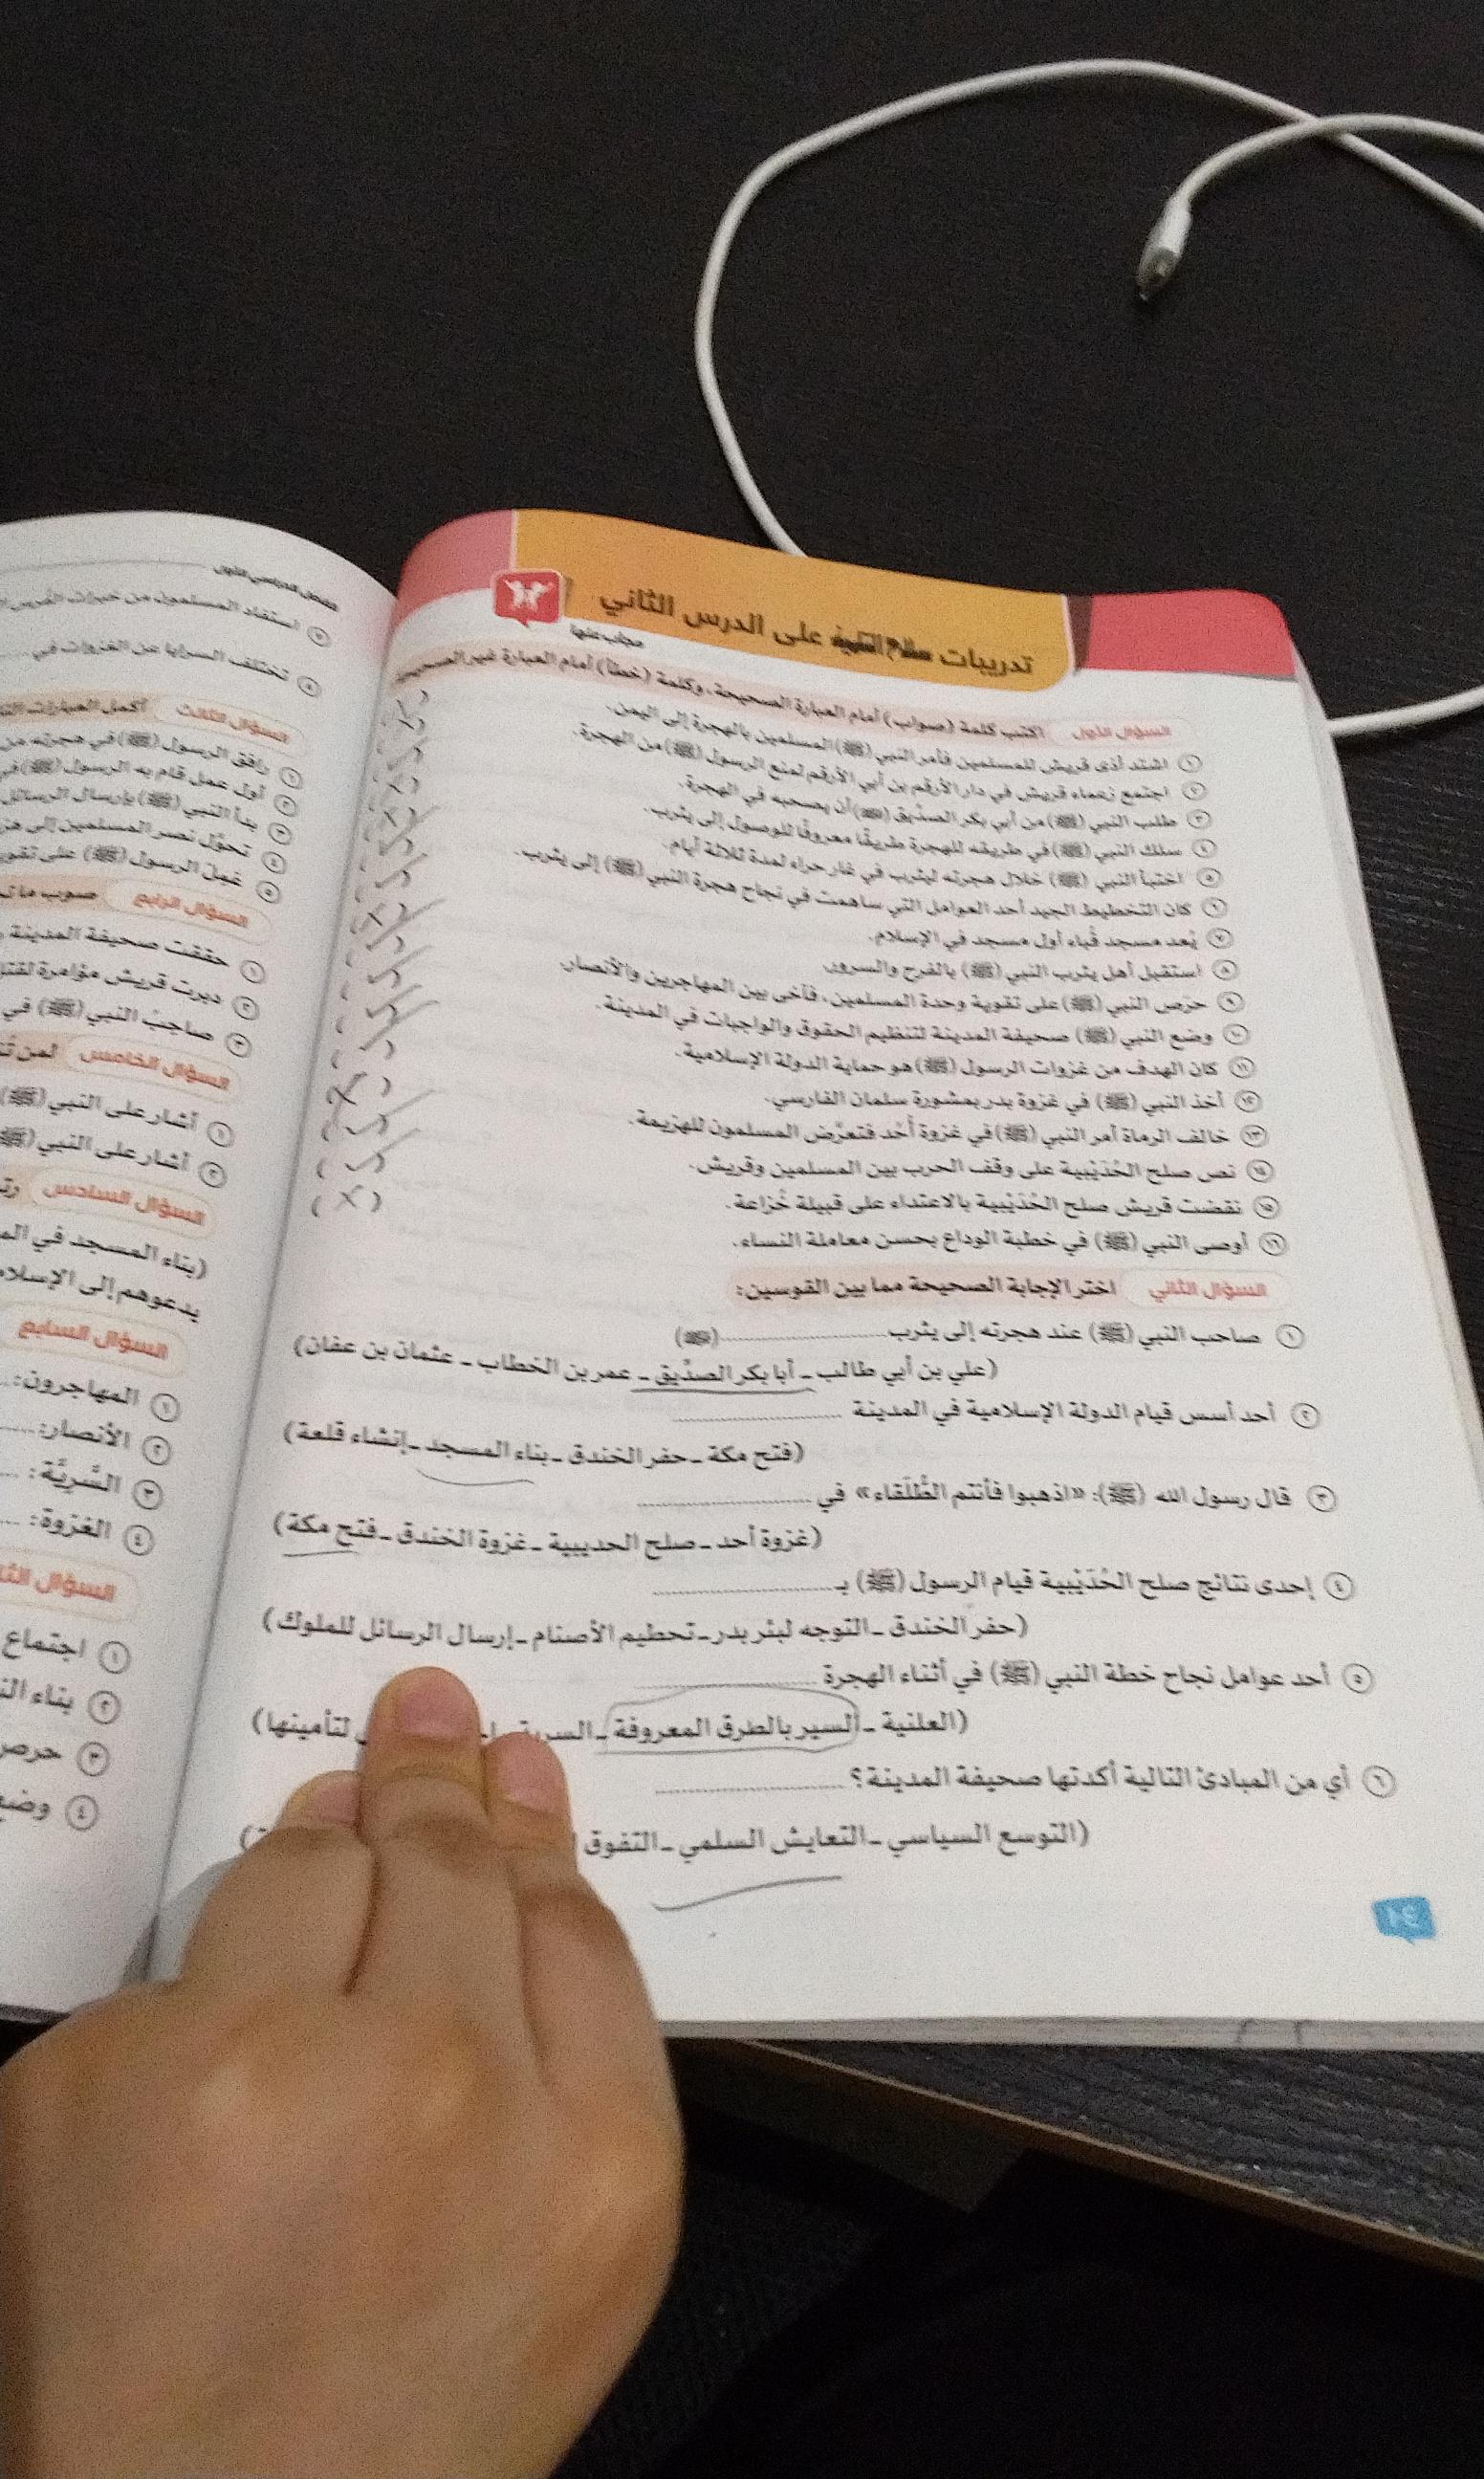 تدريبات سلاح التلميذ على الدرس الثاني
مجاب عنها
السؤال الأول اكتب كلمة (صواب) أمام العبارة الصحيحة، وكلمة (خطأ) أمام العبارة غير الصحيحة
١ اشتد أذى قريش للمسلمين فأمر النبي (ﷺ) المسلمين بالهجرة إلى اليمن.
٢ اجتمع زعماء قريش في دار الأرقم بن أبي الأرقم لمنع الرسول (ﷺ) من الهجرة.
٣ طلب النبي (ﷺ) من أبي بكر الصدِّيق (رضي الله عنه) أن يصحبه في الهجرة.
٤ سلك النبي (ﷺ) في طريقه للهجرة طريقًا معروفًا للوصول إلى يثرب.
٥ اختبأ النبي (ﷺ) خلال هجرته ليثرب في غار حراء لمدة ثلاثة أيام.
٦ كان التخطيط الجيد أحد العوامل التي ساهمت في نجاح هجرة النبي (ﷺ) إلى يثرب.
٧ يُعد مسجد قُباء أول مسجد في الإسلام.
٨ استقبل أهل يثرب النبي (ﷺ) بالفرح والسرور.
٩ حرَص النبي (ﷺ) على تقوية وحدة المسلمين، فآخى بين المهاجرين والأنصار.
١٠ وضع النبي (ﷺ) صحيفة المدينة لتنظيم الحقوق والواجبات في المدينة.
١١ كان الهدف من غزوات الرسول (ﷺ) هو حماية الدولة الإسلامية.
١٢ أخذ النبي (ﷺ) في غزوة بدر بمشورة سلمان الفارسي.
١٣ خالف الرماة أمر النبي (ﷺ) في غزوة أُحُد فتعرَّض المسلمون للهزيمة.
١٤ نص صلح الحُدَيْبية على وقف الحرب بين المسلمين وقريش.
١٥ نقضت قريش صلح الحُدَيْبية بالاعتداء على قبيلة خُزاعة.
١٦ أوصى النبي (ﷺ) في خطبة الوداع بحسن معاملة النساء.
السؤال الثاني اختر الإجابة الصحيحة مما بين القوسين:
١ صاحب النبي (ﷺ) عند هجرته إلى يثرب .................... (رضي الله عنه)
(علي بن أبي طالب – أبا بكر الصدِّيق – عمر بن الخطاب – عثمان بن عفان)
٢ أحد أسس قيام الدولة الإسلامية في المدينة ....................
(فتح مكة – حفر الخندق – بناء المسجد – إنشاء قلعة)
٣ قال رسول الله (ﷺ): «اذهبوا فأنتم الطُّلَقاء» في ....................
(غزوة أحد – صلح الحديبية – غزوة الخندق – فتح مكة)
٤ إحدى نتائج صلح الحُدَيْبية قيام الرسول (ﷺ) بـ ....................
(حفر الخندق – التوجه لبئر بدر – تحطيم الأصنام – إرسال الرسائل للملوك)
٥ أحد عوامل نجاح خطة النبي (ﷺ) في أثناء الهجرة ....................
(العلنية – السير بالطرق المعروفة – السرية – لتأمينها)
٦ أي من المبادئ التالية أكدتها صحيفة المدينة؟ ....................
(التوسع السياسي – التعايش السلمي – التفوق
الفصل الدراسي الأول
٧ استفاد المسلمون من خبرات الفُرس
٨ تختلف السرايا عن الغزوات في ....
السؤال الثالث أكمل العبارات
١ رافق الرسول (ﷺ) في هجرته من
٢ أول عمل قام به الرسول (ﷺ)
٣ بدأ النبي (ﷺ) بإرسال الرسائل
٤ تحوَّل نصر المسلمين إلى
٥ عمِل الرسول (ﷺ) على
السؤال الرابع صوب ما
١ حققت صحيفة المدينة
٢ دبرت قريش مؤامرة
٣ صاحبَ النبي (ﷺ) في
السؤال الخامس
١ أشار على النبي (ﷺ)
٢ أشار على النبي
السؤال السادس
(بناء المسجد في
يدعوهم إلى
السؤال السابع
١ المهاجرون: ....
٢ الأنصار: ....
٣ السَّرِيَّة: ....
٤ الغزوة: ....
السؤال
١ اجتماع
٢ بناء
٣ حرص
٤